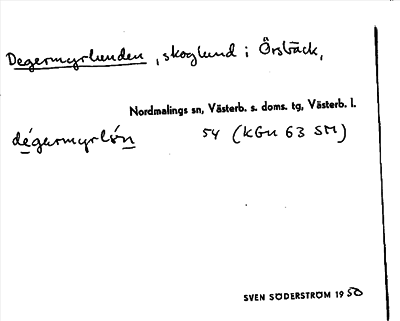 Degermyrlunden, skoglund i Örsbäck,
Nordmalings sn, Västerb. s. doms. tg, Västerb. l.
dégermyrlón 54 (KGu 63 SM)
SVEN SÖDERSTRÖM 1950